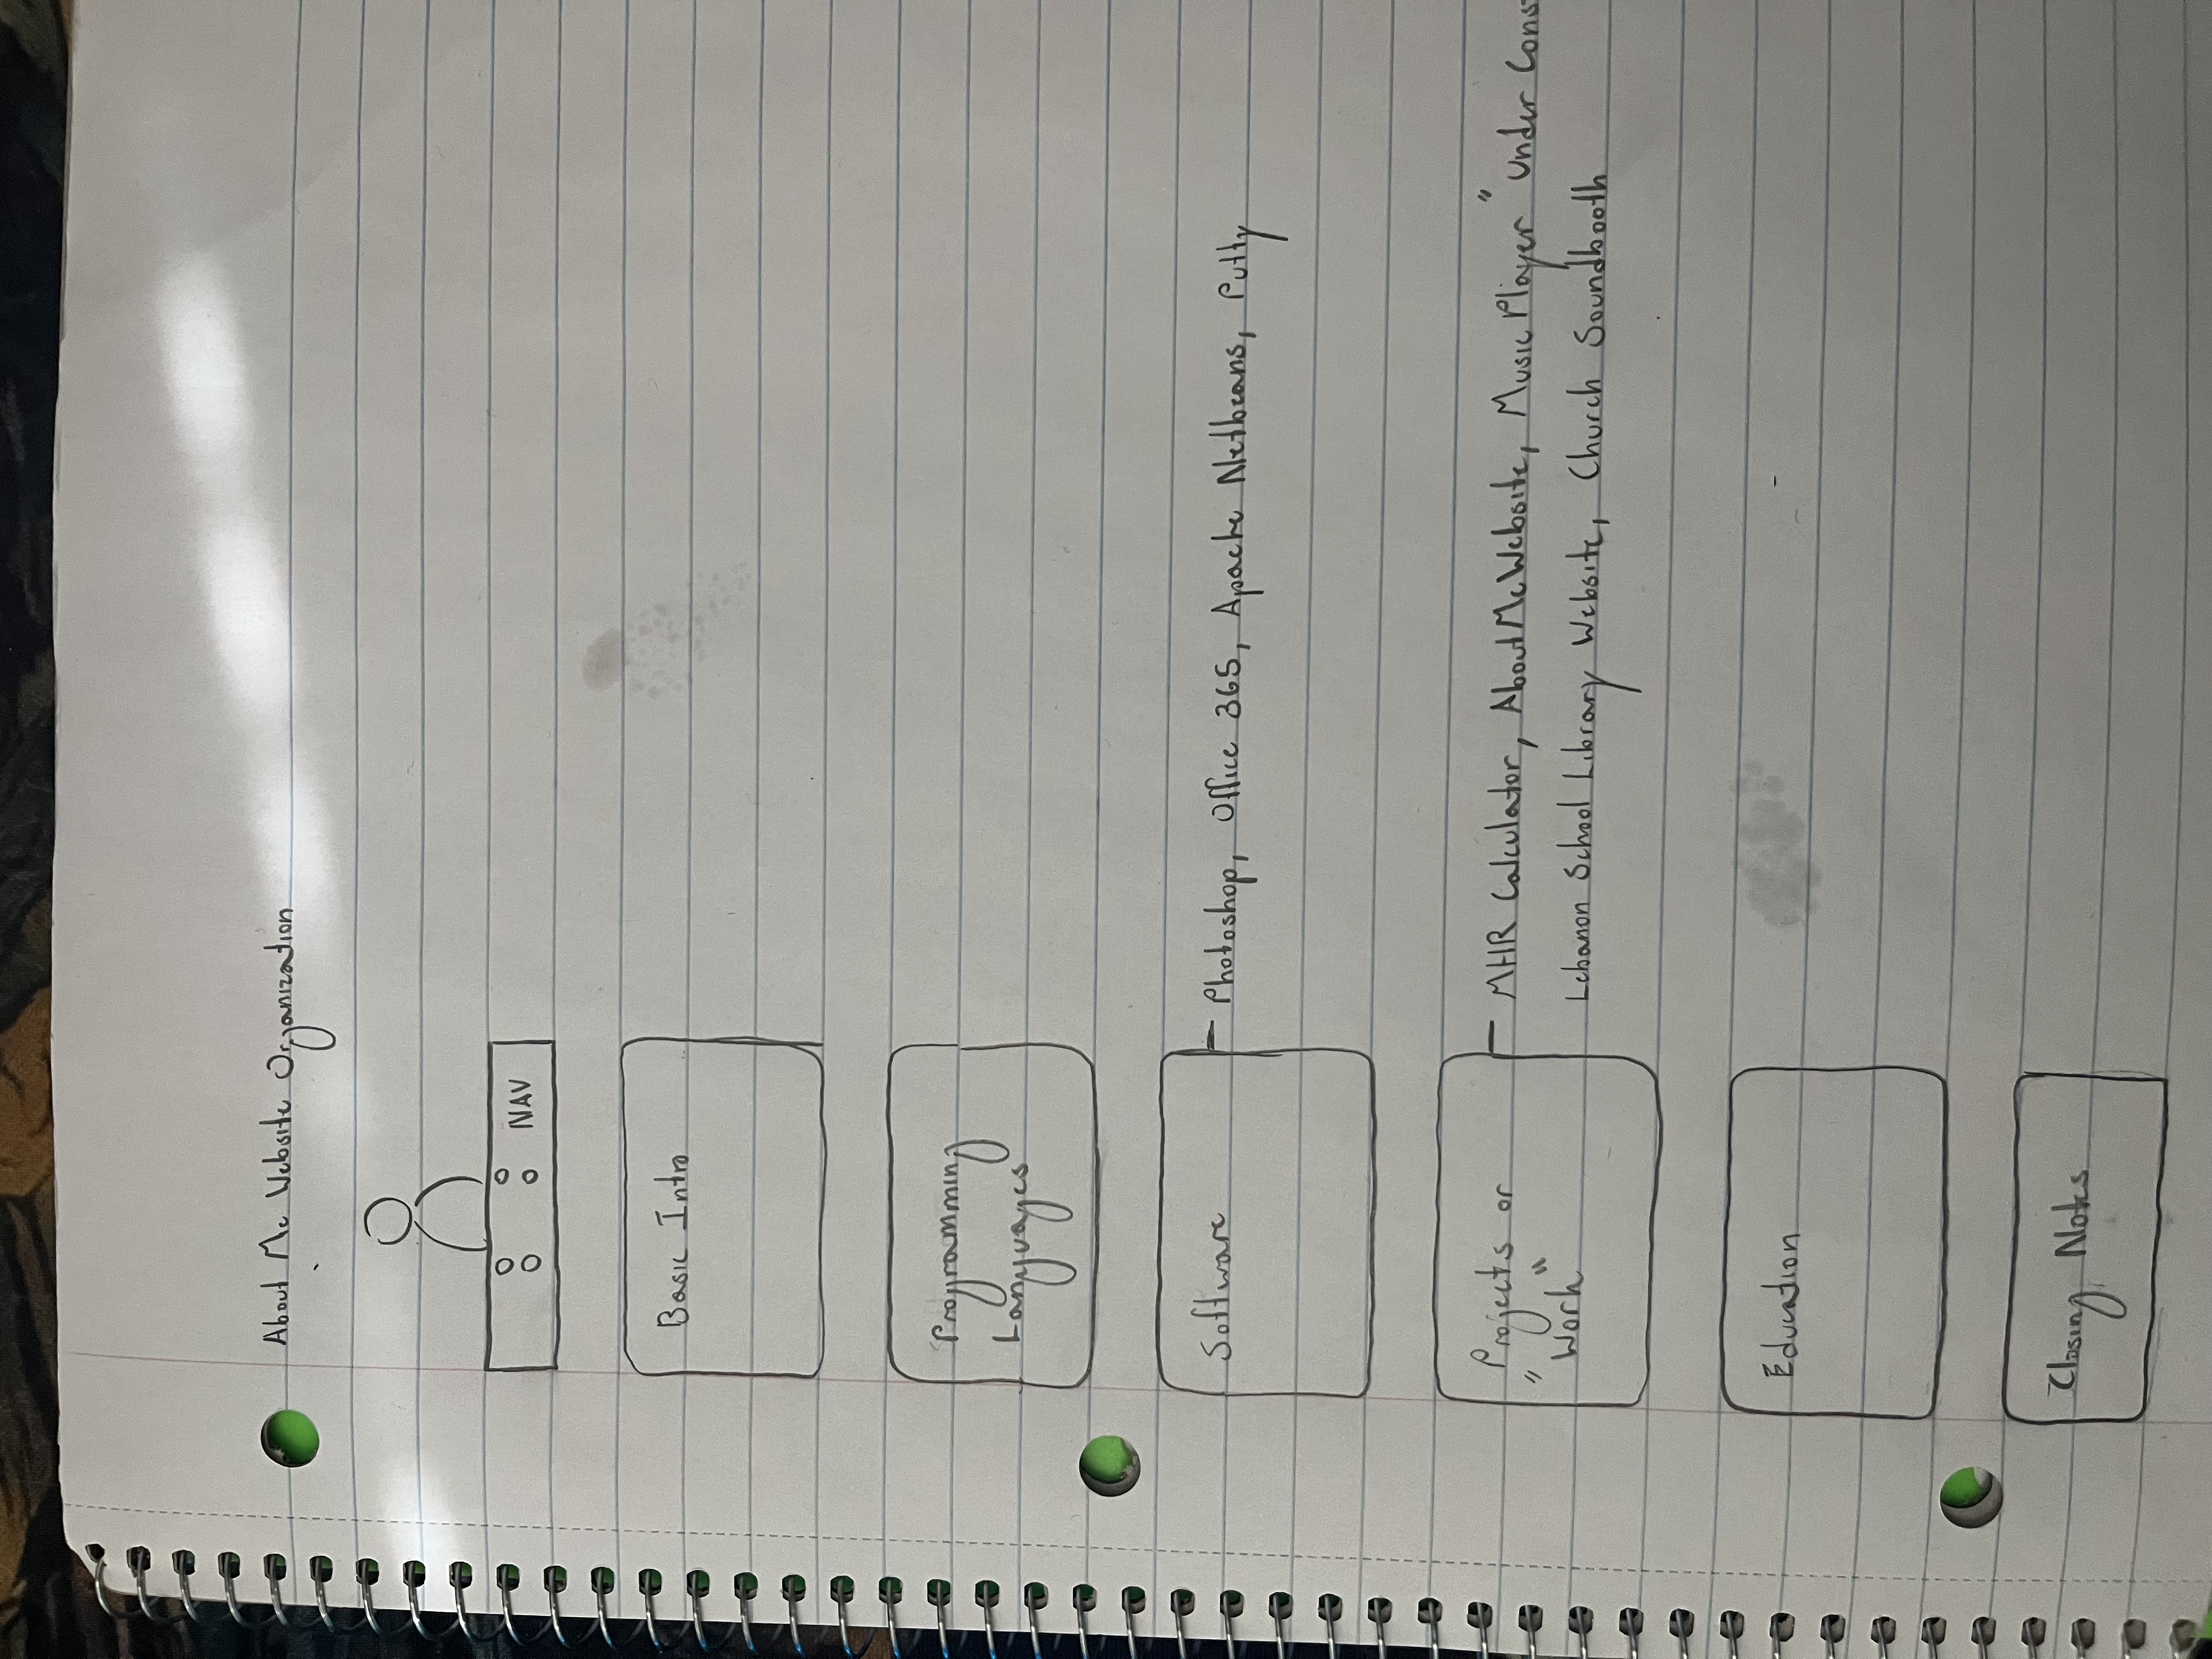 About Me Website Organization
NAV
Basic Intro
Programming
Languages
Software
Photoshop, Office 365, Apache Netbeans, Putty
Projects or
"Work"
MHR Calculator, AboutMeWebsite, Music Player "Under Cons
Lebanon School Library Website, Church Soundbooth
Education
Closing Notes